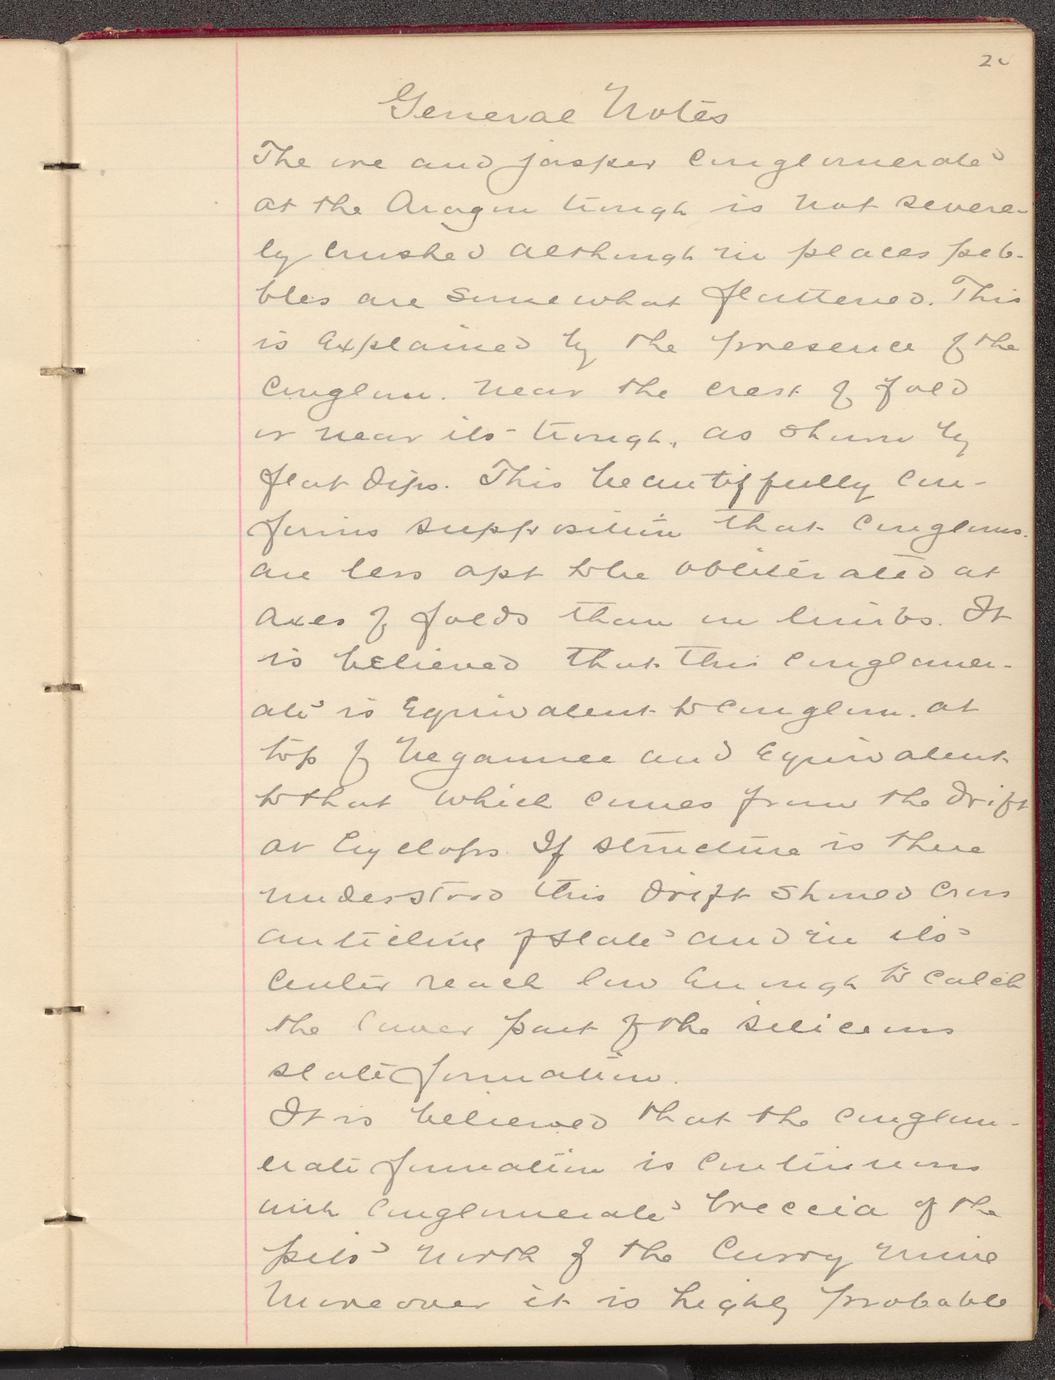 20
General Notes
The ore and jasper conglomerate
at the Aragon trough is not severe-
ly crushed although in places peb-
bles are somewhat flattened. This
is explained by the presence of the
conglom. near the crest of fold
or near its trough, as shown by
flat dips. This beautifully con-
forms supposition that congloms.
are less apt to be obliterated at
axes of folds than on limbs. It
is believed that this conglomer-
ate is equivalent to conglom. at
top of Negaunee and equivalent
to that which comes from the drift
at Cyclops. If structure is there
understood this drift should cross
anticline of slate and in its
center reach low enough to catch
the lower part of the siliceous
slate formation.
It is believed that the conglom-
erate formation is continuous
with conglomerate breccia of the
pits north of the Curry mine
Moreover it is highly probable